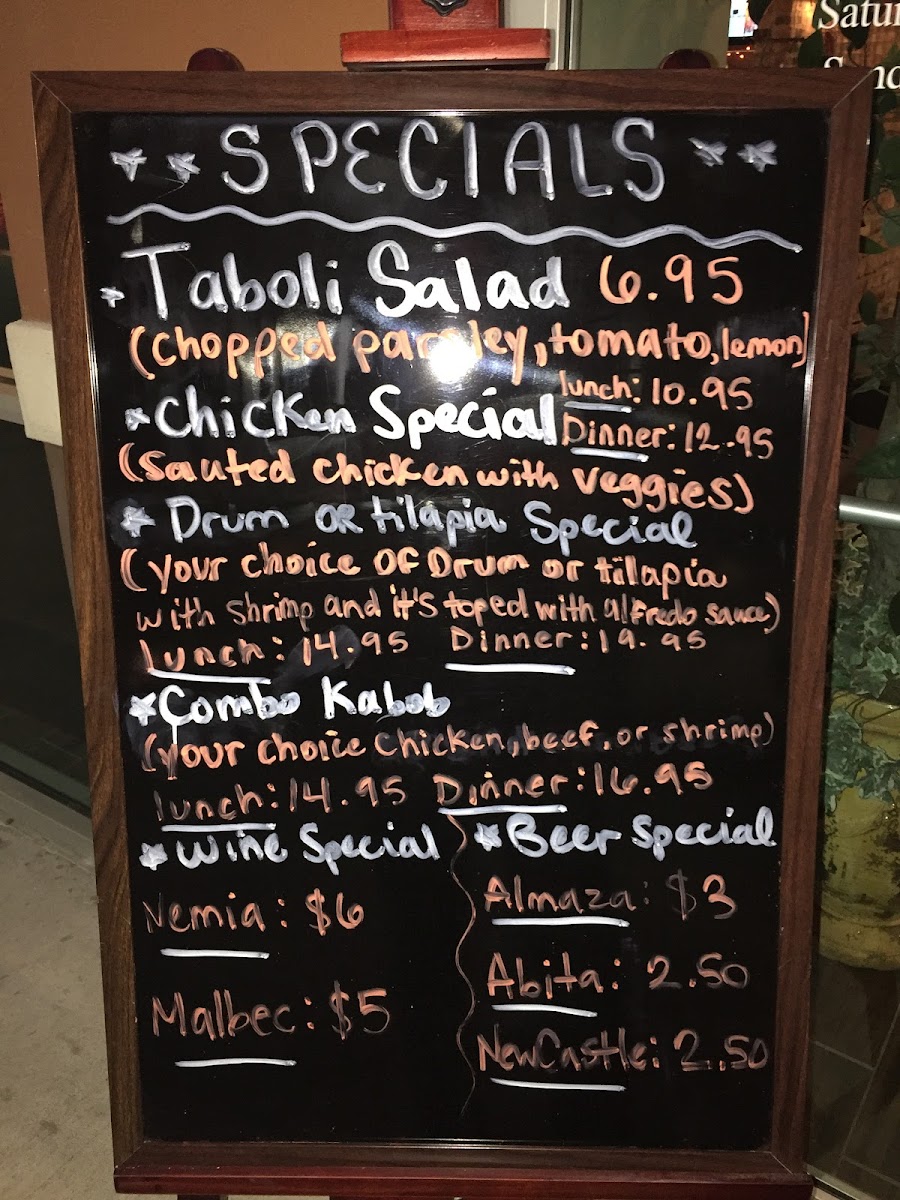 Satu
** SPECIALS **
* Taboli Salad 6.95
(chopped parsley, tomato, lemon)
* Chicken Special lunch: 10.95
Dinner: 12.95
(Sauted chicken with veggies)
* Drum OR tilapia Special
(your choice OF Drum or tilapia
with shrimp and it's toped with alfredo sauce)
Lunch: 14.95 Dinner: 19.95
* Combo Kabob
(your choice chicken, beef, or shrimp)
lunch: 14.95 Dinner: 16.95
* Wine Special
Nemia: $6
Malbec: $5
* Beer Special
Almaza: $3
Abita: 2.50
NewCastle: 2.50